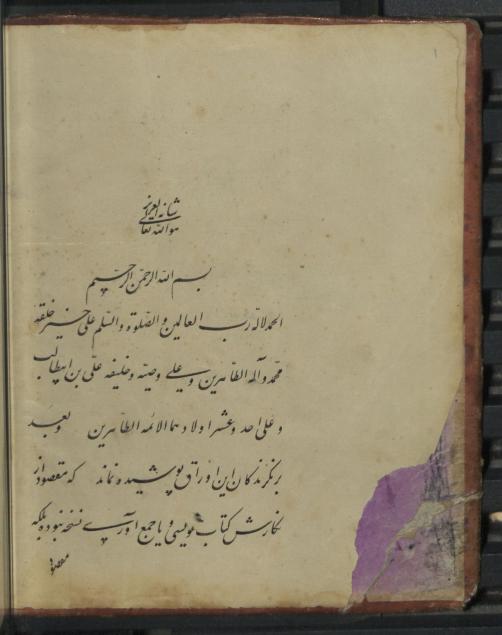 هو الله تعالی
شانه العزیز
بسم الله الرحمن الرحیم
الحمدلله رب العالمین و الصلوة والسلم علی خیر خلقه
محمد و آله الطاهرین و علی وصیه و خلیفه علی بن ابیطالب
و علی احد و عشر اولادهما الائمه الطاهرین و بعد
برنگرندگان این اوراق پوشیده نماند که مقصود از
نگارش کتاب نویسی و یا جمع آوری نسخه نبوده بلکه
مقصود